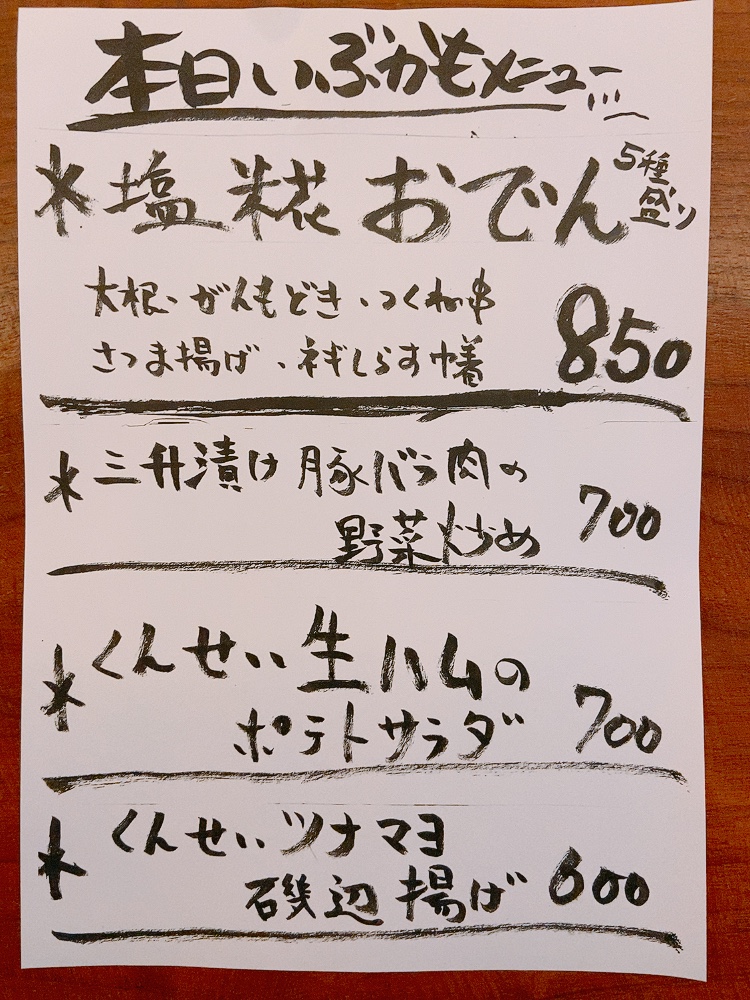 本日いぶかもメニュー
*塩糀おでん 5種盛り
大根・がんもどき・つくね串
さつま揚げ、ネギしらす巾着 850
*三升漬け豚バラ肉の
野菜炒め 700
*くんせい生ハムの
ポテトサラダ 700
*くんせいツナマヨ
磯辺揚げ 600